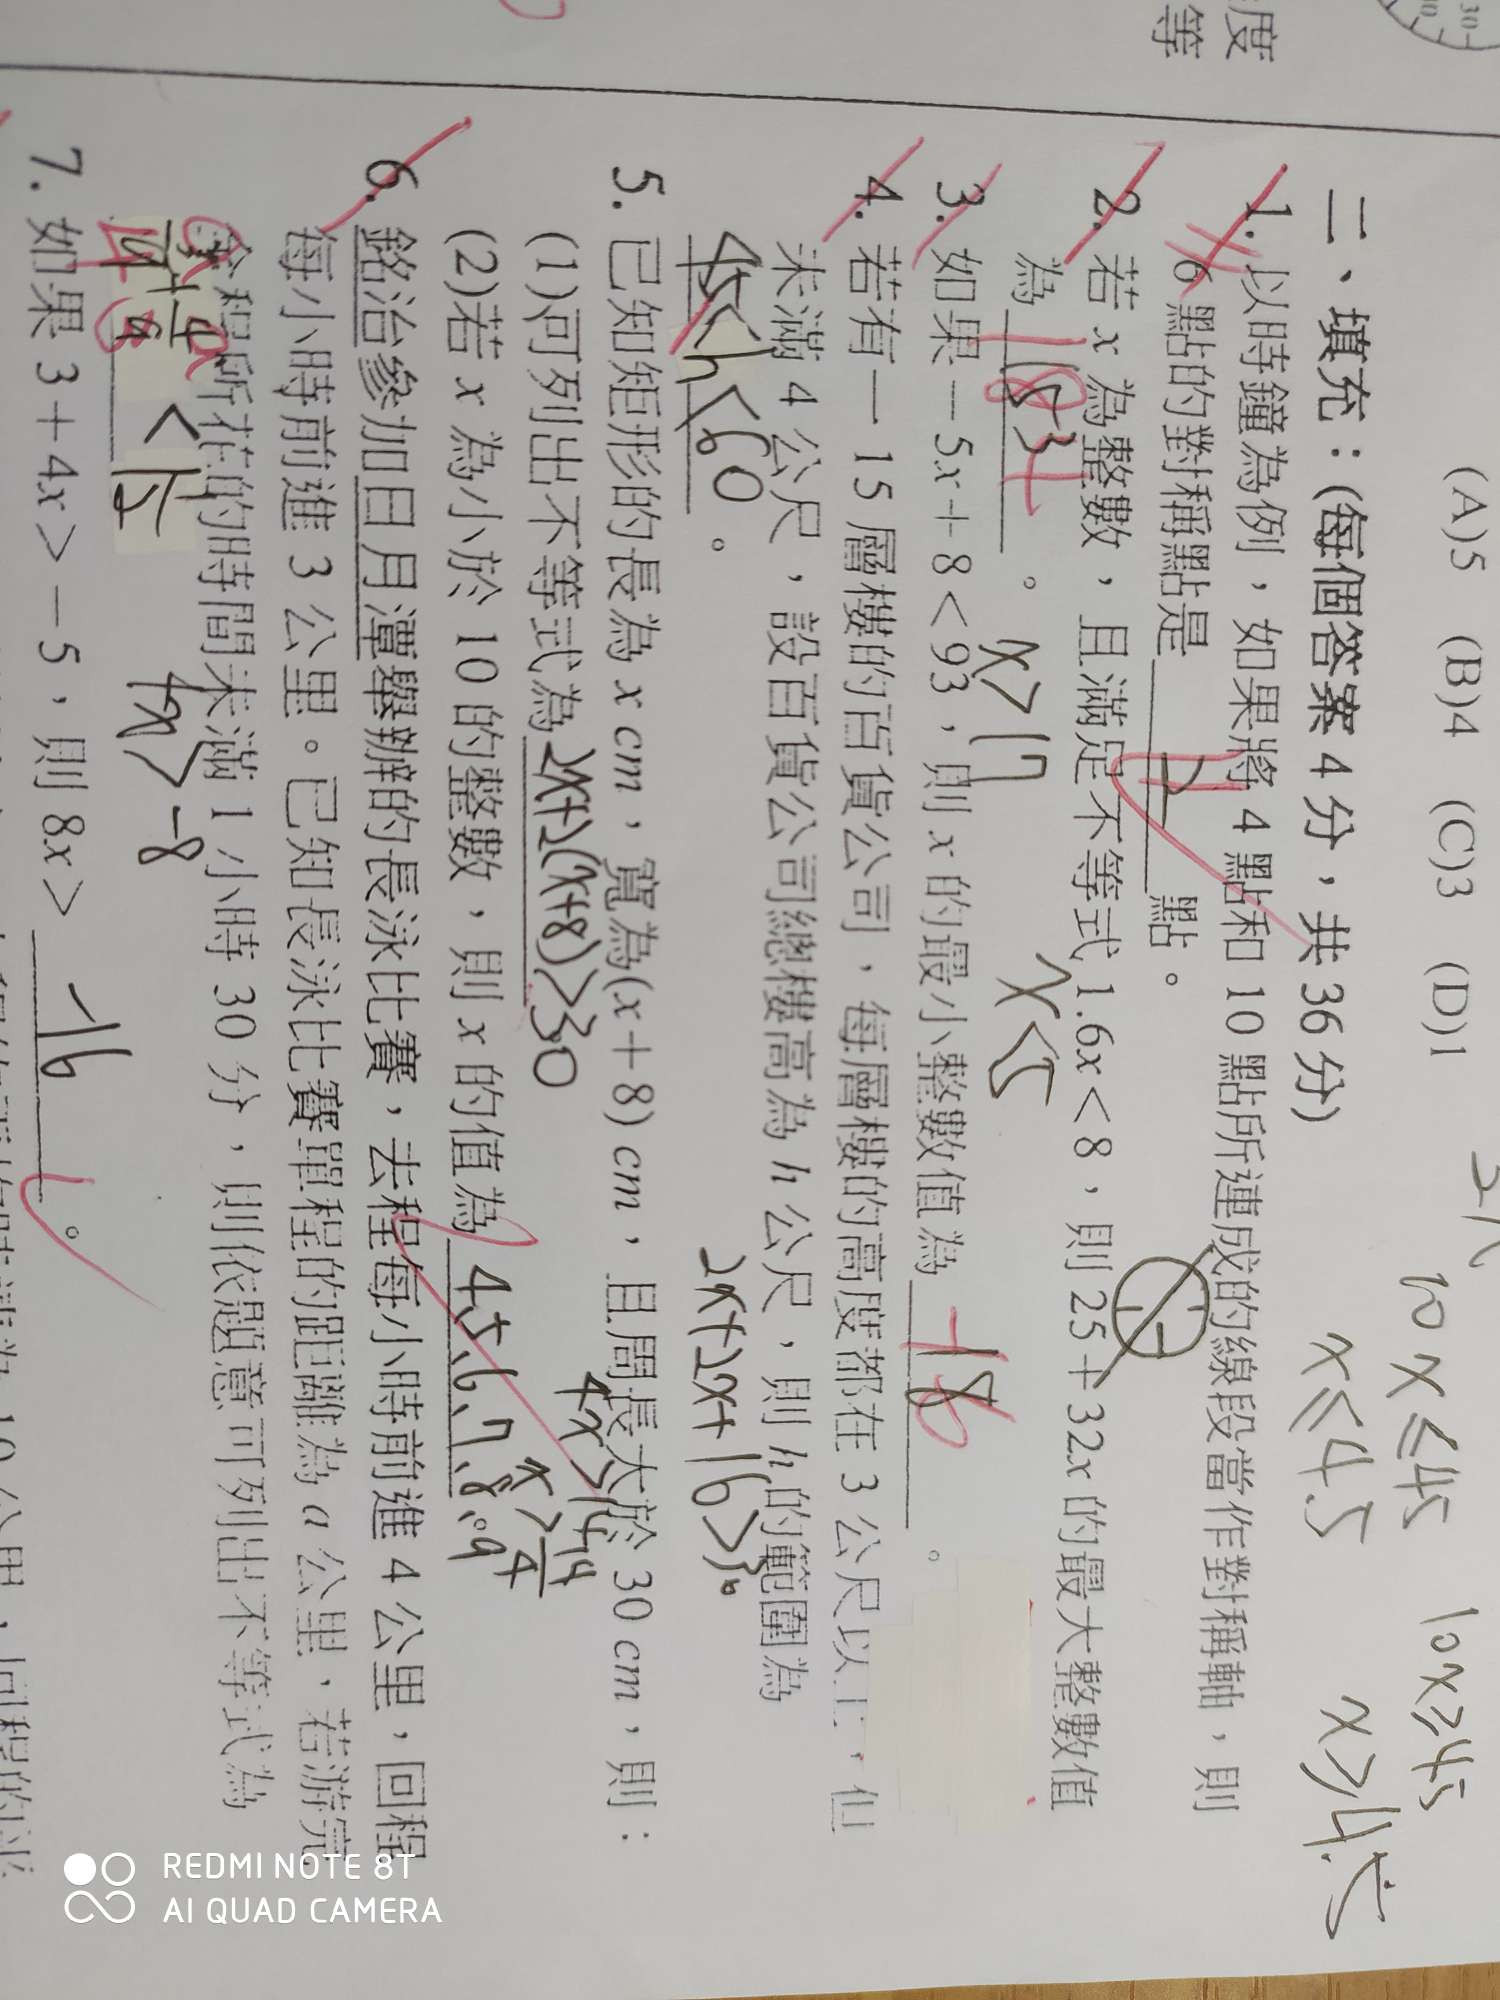 度
等
30
(A)5 (B)4 (C)3 (D)1
10x≤45
x≤4.5
10x≥45
x≥4.5
二、填充：(每個答案 4 分，共 36 分)
1. 以時鐘為例，如果將 4 點和 10 點所連成的線段當作對稱軸，則
6 點的對稱點是 點。
2. 若 x 為整數，且滿足不等式 1.6x＜8，則 25＋32x 的最大整數值
為 。
x<5
3. 如果－5x＋8＜93，則 x 的最小整數值為 -16 。
x>17
4. 若有一 15 層樓的百貨公司，每層樓的高度都在 3 公尺以上，但
未滿 4 公尺，設百貨公司總樓高為 h 公尺，則 h 的範圍為
45<h<60 。
2x+2x+16>30
5. 已知矩形的長為 x cm，寬為(x＋8) cm，且周長大於 30 cm，則：
(1)可列出不等式為 2x+2(x+8)>30
4x>14
(2)若 x 為小於 10 的整數，則 x 的值為 4、5、6、7、8、9
x>14/4
6. 銘治參加日月潭舉辦的長泳比賽，去程每小時前進 4 公里，回程
每小時前進 3 公里。已知長泳比賽單程的距離為 a 公里，若游完
全程所花的時間未滿 1 小時 30 分，則依題意可列出不等式為
4x>-8
7. 如果 3＋4x＞－5，則 8x＞ -16 。
REDMI NOTE 8T
AI QUAD CAMERA